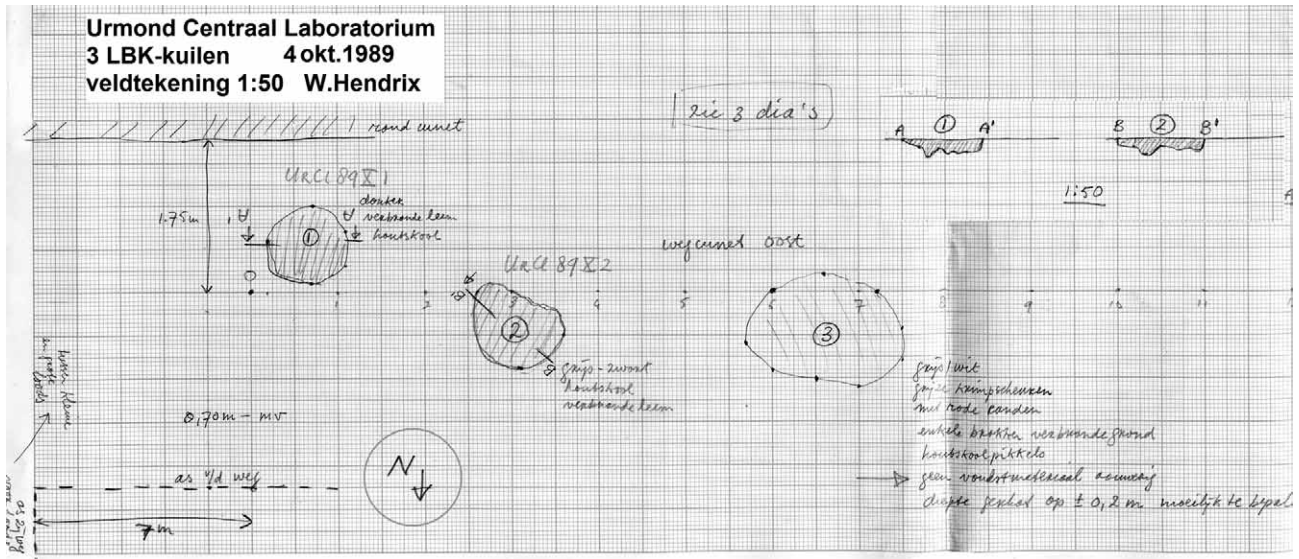 Urmond Centraal Laboratorium
3 LBK-kuilen 4 okt.1989
veldtekening 1:50 W.Hendrix
zie 3 dia's
rand cunet
A 1 A'
B 2 B'
1:50
1.75m
UrCl 89 X 1
donker
verbrande leem
houtskool
A' A
1
wegcunet oost
UrCl 89 X 2
B'
2
B
grijs-zwart
houtskool
verbrande leem
3
0 1 2 3 4 5 6 7 8 9 10 11
grijs/wit
grijze krimpscheuren
met rode randen
enkele brokken verbrande grond
houtskoolpikkels
geen vondstmateriaal aanwezig
diepte geschat op ± 0,2 m moeilijk te bepal
tussen kleine
en grote
loods
0,70m - mv
N
as v/d weg
7m